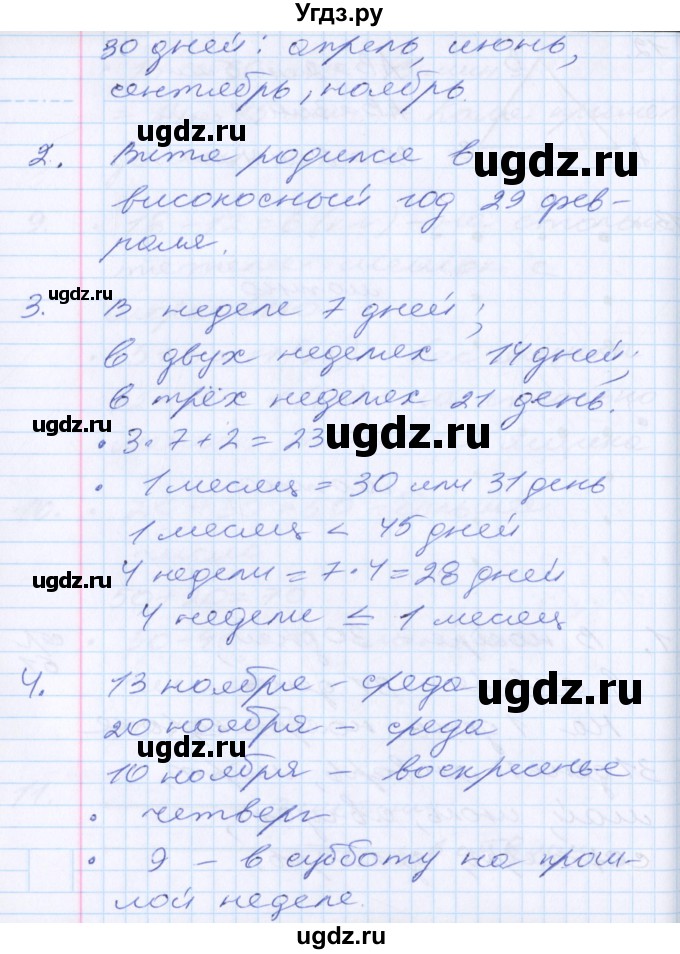 Угдз.ру
30 дней: апрель, июнь,
сентябрь, ноябрь.
ugdz.ru
ugdz.ru
2. Витя родился в
високосный год 29 фев-
раля.
ugdz.ru
3. В неделе 7 дней;
в двух неделях 14 дней;
в трёх неделях 21 день.
ugdz.ru
ugdz.ru
• 3·7+2=23
• 1 месяц = 30 или 31 день
1 месяц < 45 дней
ugdz.ru
4 недели = 7·4=28 дней
4 недели ≤ 1 месяц
4. 13 ноября - среда
ugdz.ru
20 ноября - среда
ugdz.ru
10 ноября - воскресенье
• четверг
• 9 - в субботу на прош-
лой неделе.
ugdz.ru